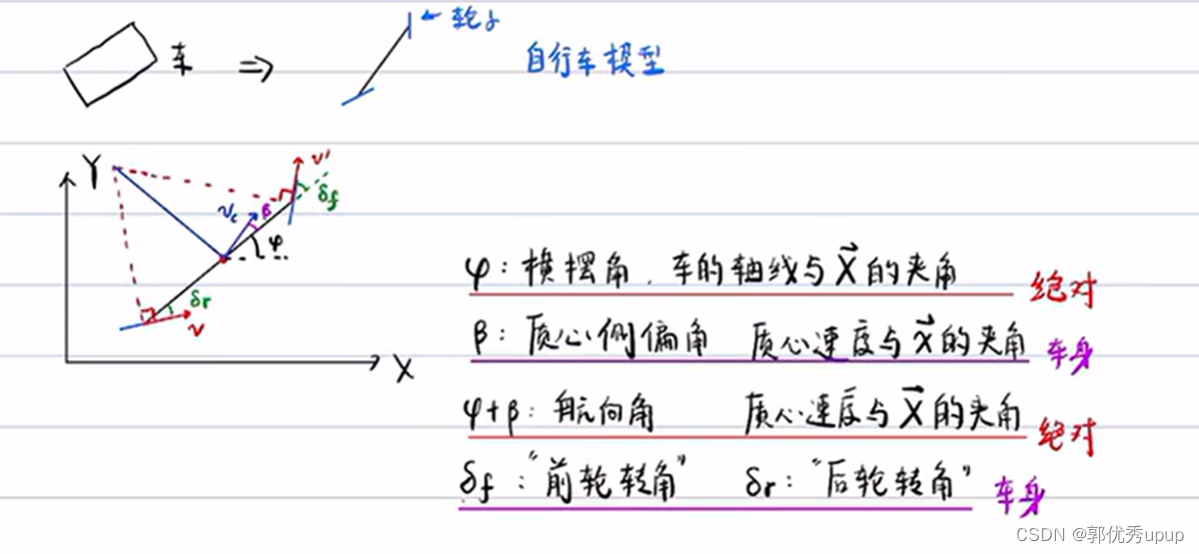 车 ⇒ ← 轮子
自行车模型
Y
v'
δf
v_c
β
φ
δr
v
X
φ: 横摆角, 车的轴线与X⃗的夹角 绝对
β: 质心侧偏角 质心速度与x⃗的夹角 车身
φ+β: 航向角 质心速度与X⃗的夹角 绝对
δf: "前轮转角" δr: "后轮转角" 车身
CSDN @郭优秀upup